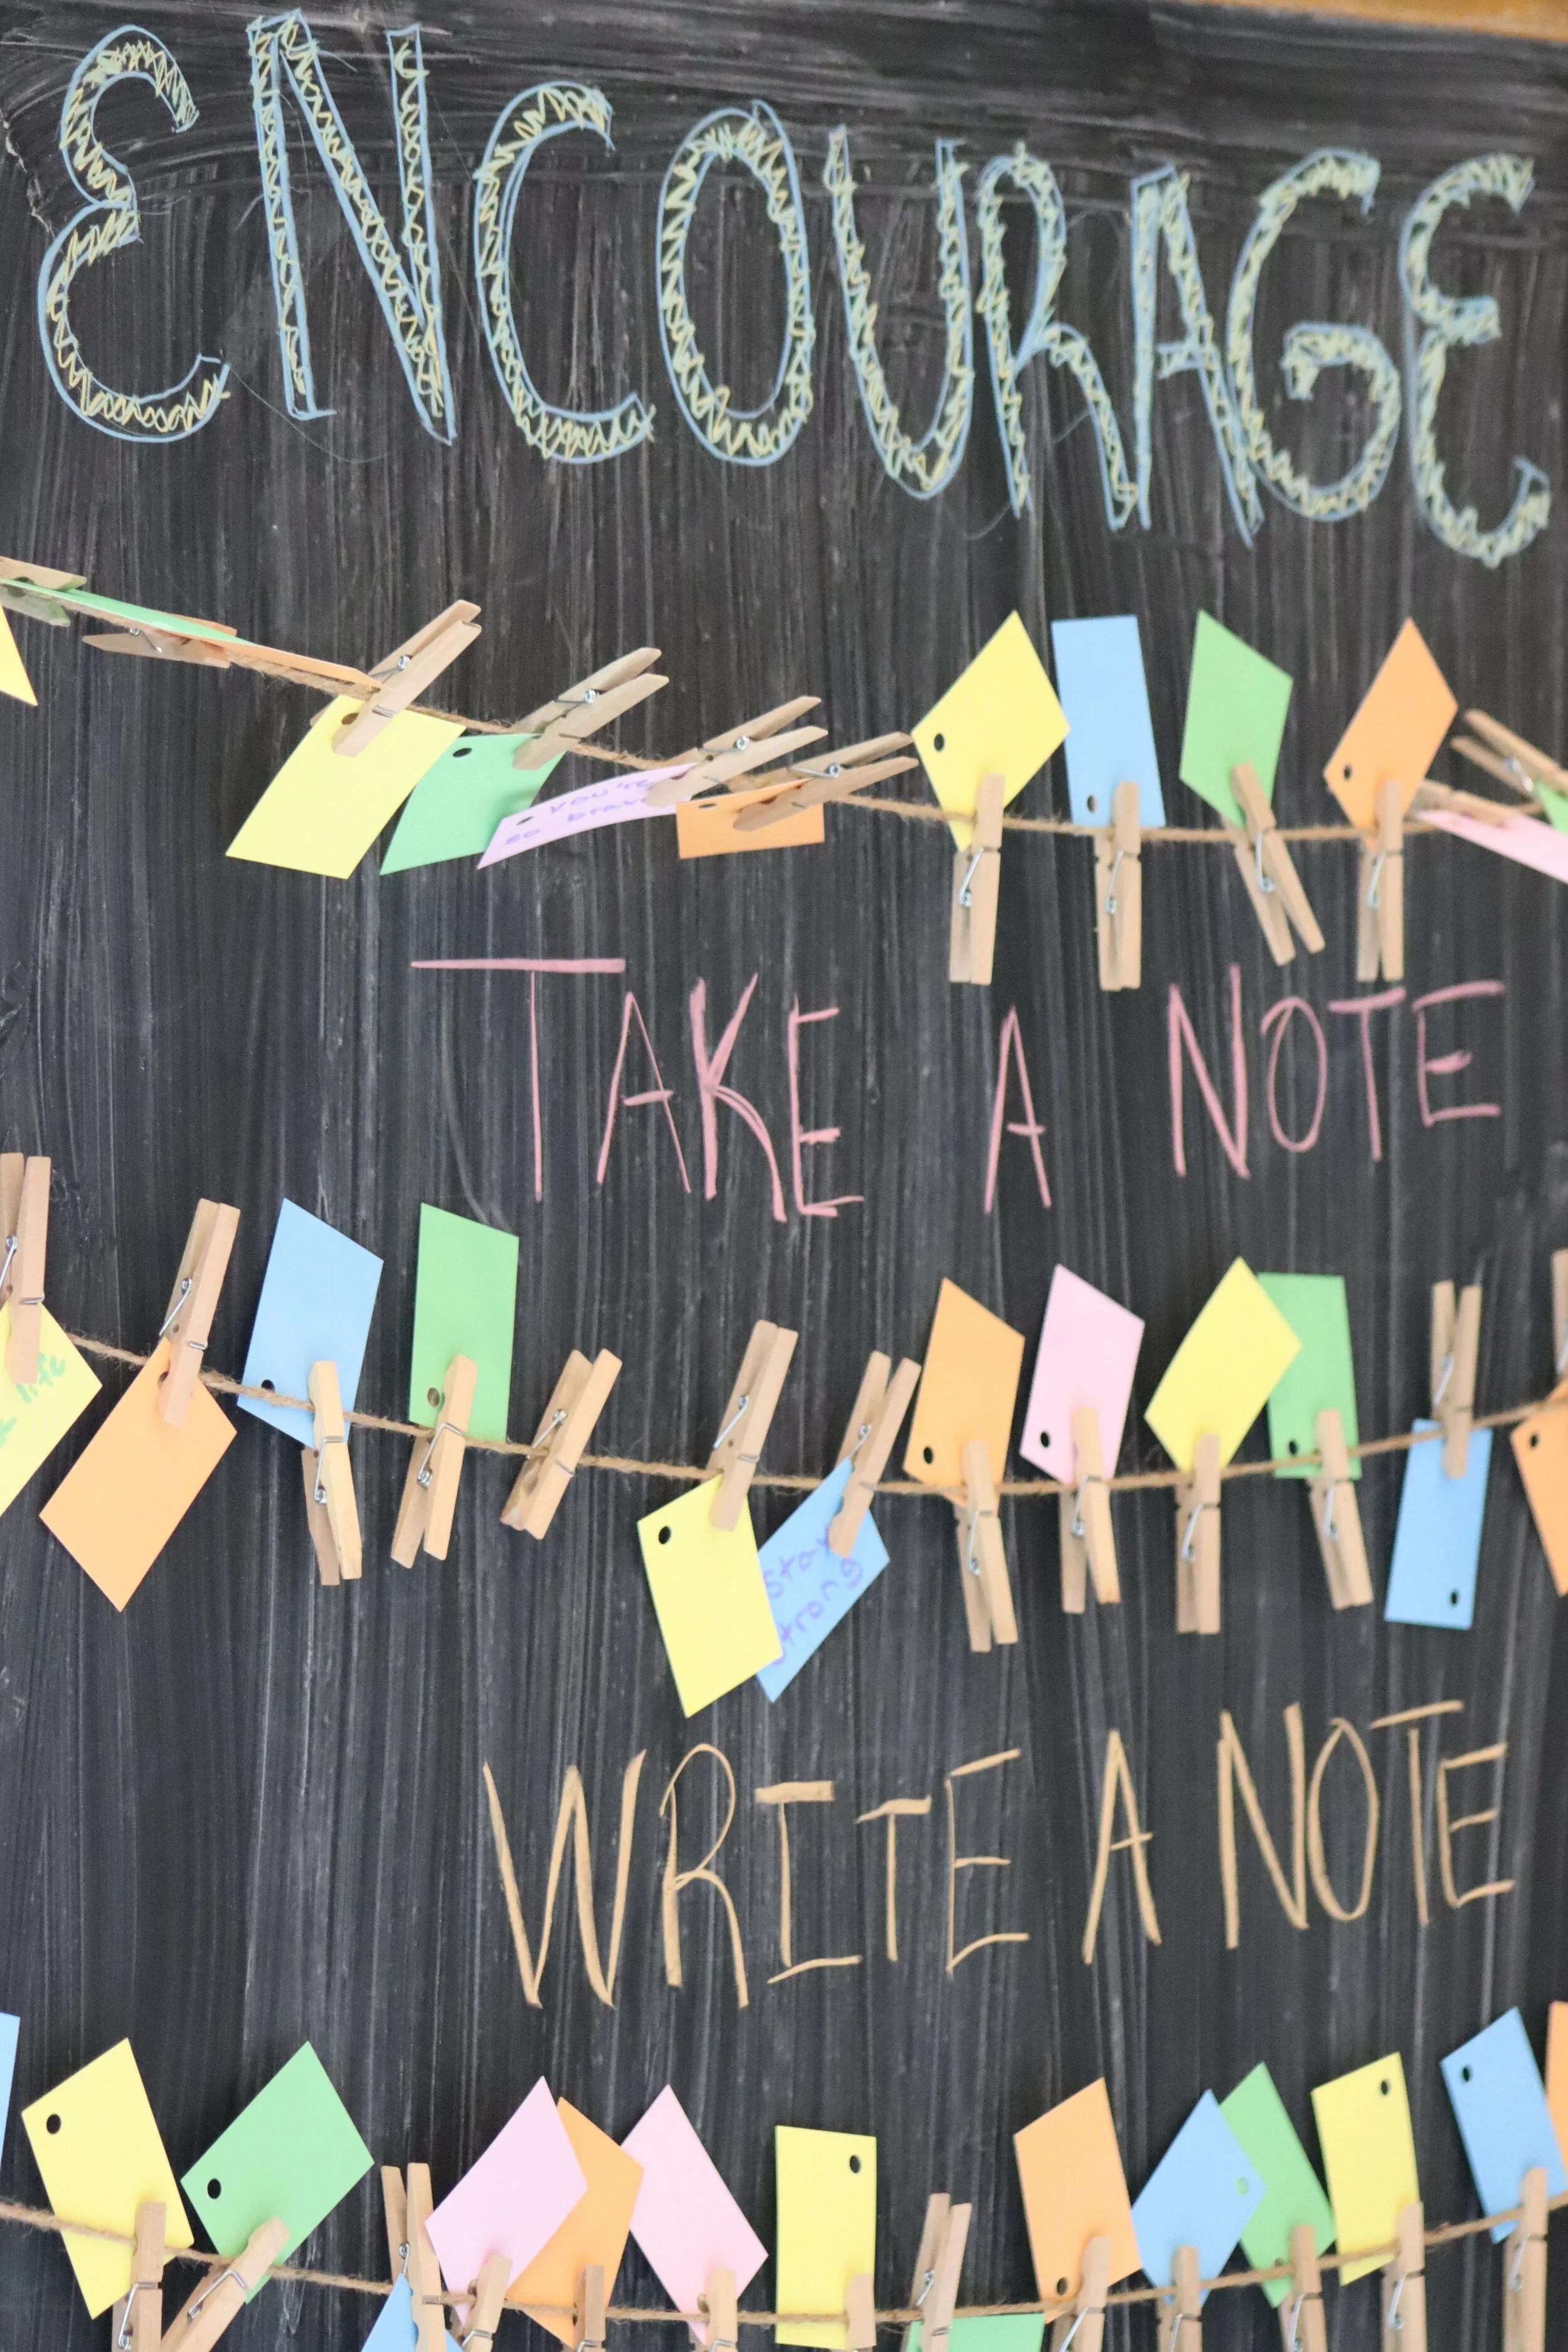 ENCOURAGE
you're
so brave
TAKE A NOTE
life
stay
strong
WRITE A NOTE